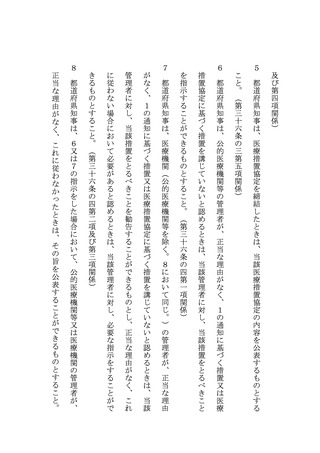 及び第四項関係)
5 都道府県知事は、医療措置協定を締結したときは、当該医療措置協定の内容を公表するものとする
こと。(第三十六条の三第五項関係)
6 都道府県知事は、公的医療機関等の管理者が、正当な理由がなく、1の通知に基づく措置又は医療
措置協定に基づく措置を講じていないと認めるときは、当該管理者に対し、当該措置をとるべきこと
を指示することができるものとすること。(第三十六条の四第一項関係)
7 都道府県知事は、医療機関(公的医療機関等を除く。8において同じ。)の管理者が、正当な理由
がなく、1の通知に基づく措置又は医療措置協定に基づく措置を講じていないと認めるときは、当該
管理者に対し、当該措置をとるべきことを勧告することができるものとし、正当な理由がなく、これ
に従わない場合において必要があると認めるときは、当該管理者に対し、必要な指示をすることがで
きるものとすること。(第三十六条の四第二項及び第三項関係)
8 都道府県知事は、6又は7の指示をした場合において、公的医療機関等又は医療機関の管理者が、
正当な理由がなく、これに従わなかったときは、その旨を公表することができるものとすること。